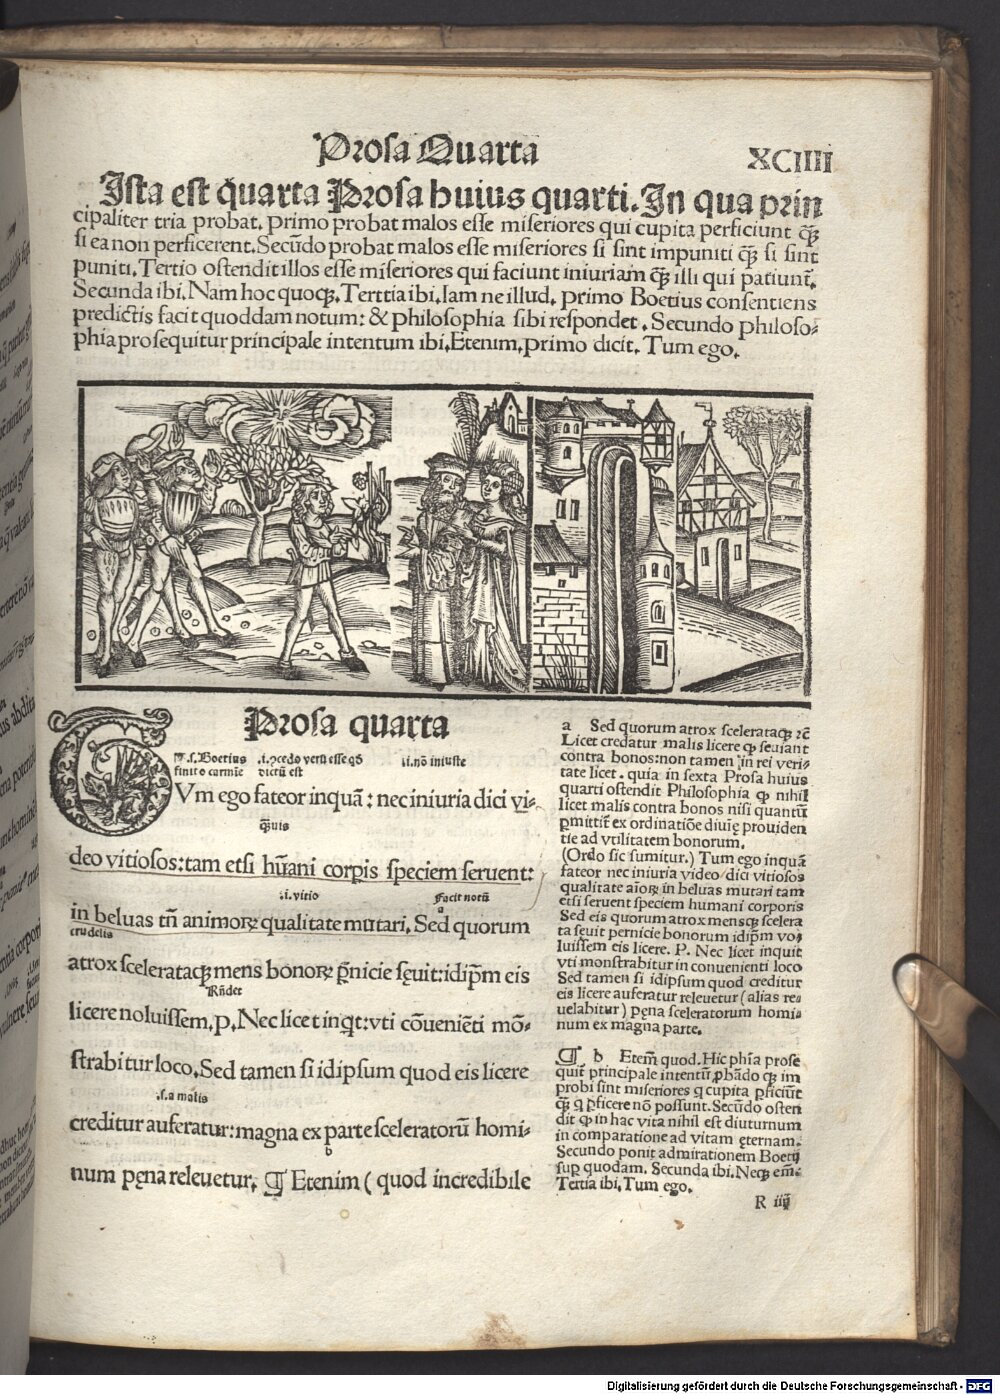 Prosa Quarta
XCIIII
Ista est q̃rarta Prosa huius quarti. In qua prin
cipaliter tria probat. Primo probat malos esse miseriores qui cupita perficiunt q̃ꝫ
si ea non perficerent. Secũdo probat malos esse miseriores si sint impuniti q̃ꝫ si sint
puniti. Tertio ostendit illos esse miseriores qui faciunt iniuriam q̃ꝫ illi qui patiunt̃.
Secunda ibi. Nam hoc quoqꝫ. Terttia ibi. Iam ne illud. Primo Boetius consentiens
predictis facit quoddam notum: & Philosophia sibi respondet. Secundo philoso⸗
phia prosequitur principale intentum ibi. Etenim. primo dicit. Tum ego.
Prosa quarta
.s. Boetius .i. ꝓcedo verũ esse qď .i. nõ iniuste
finito carmĩe dictũ est
Vm ego fateor inquã: nec iniuria dici vi⸗
q̃uis
deo vitiosos: tam etsi hũani corꝑis speciem seruent:
.i. vitio facit notũ
a
in beluas tñ animoꝝ qualitate mutari. Sed quorum
crudelis
atrox scelerataqꝫ mens bonoꝝ ꝑnicie sęuit: idip̃m eis
Rñdet
licere noluissem. P. Nec licet inq̃t: vti cõueniẽti mõ⸗
strabitur loco. Sed tamen si id ipsum quod eis licere
.s. a malis
creditur auferatur: magna ex parte sceleratorũ homi⸗
b
num pęna releuetur. ¶ Etenim ( quod incredibile
a Sed quorum atrox scelerataqꝫ ⁊c̃
Licet credatur malis licere ꝙ seuiant
contra bonos: non tamen in rei veri⸗
tate licet. quia in sexta Prosa huius
quarti ostendit Philosophia ꝙ nihil
licet malis contra bonos nisi quantũ
ꝑmittit̃ ex ordinatiõe diuię prouiden
tie ad vtilitatem bonorum.
(Ordo sic sumitur.) Tum ego inquã
fateor nec iniuria video dici vitiosos
qualitate aĩoꝝ in beluas mutari tam
etsi seruent speciem humani corporis
Sed eis quorum atrox mensqꝫ scelera
ta seuit pernicie bonorum idip̃m vo⸗
luissem eis licere. P. Nec licet inquit
vti monstrabitur in conuenienti loco
Sed tamen si idipsum quod creditur
eis licere auferatur releuetur (alias re⸗
uelabitur) pęna sceleratorum homi⸗
num ex magna parte.
¶ b Etem̃ quod. Hic phĩa prose
quit̃ principale intentũ ꝓbãdo ꝙ im
probi sint miseriores q̃ cupita ꝑficiũt
q̃ꝫ q̃ ꝑficere nõ possunt. Secũdo osten
dit ꝙ in hac vita nihil est diuturnum
in comparatione ad vitam ęternam.
Secundo ponit admirationem Boetij
suꝑ quodam. Secunda ibi. Neqꝫ em̃.
Tertia ibi. Tum ego.
R iiij
Digitalisierung gefördert durch die Deutsche Forschungsgemeinschaft - DFG